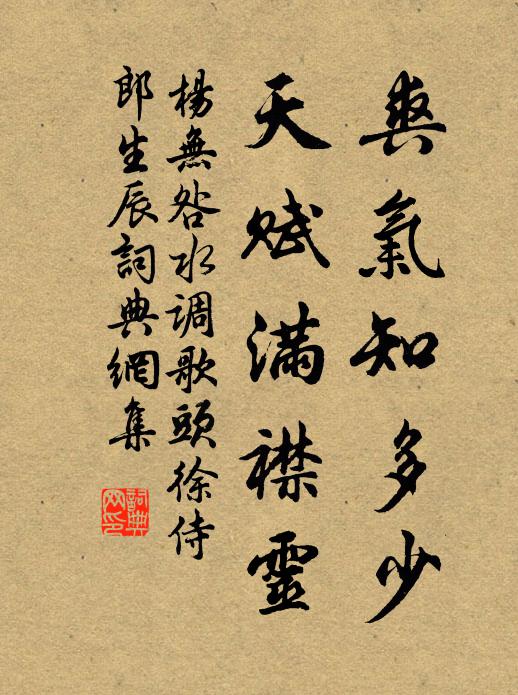 爽氣知多少
天賦滿襟靈
楊無咎水调歌頭徐侍
郎生辰詞典網集
詞典網印